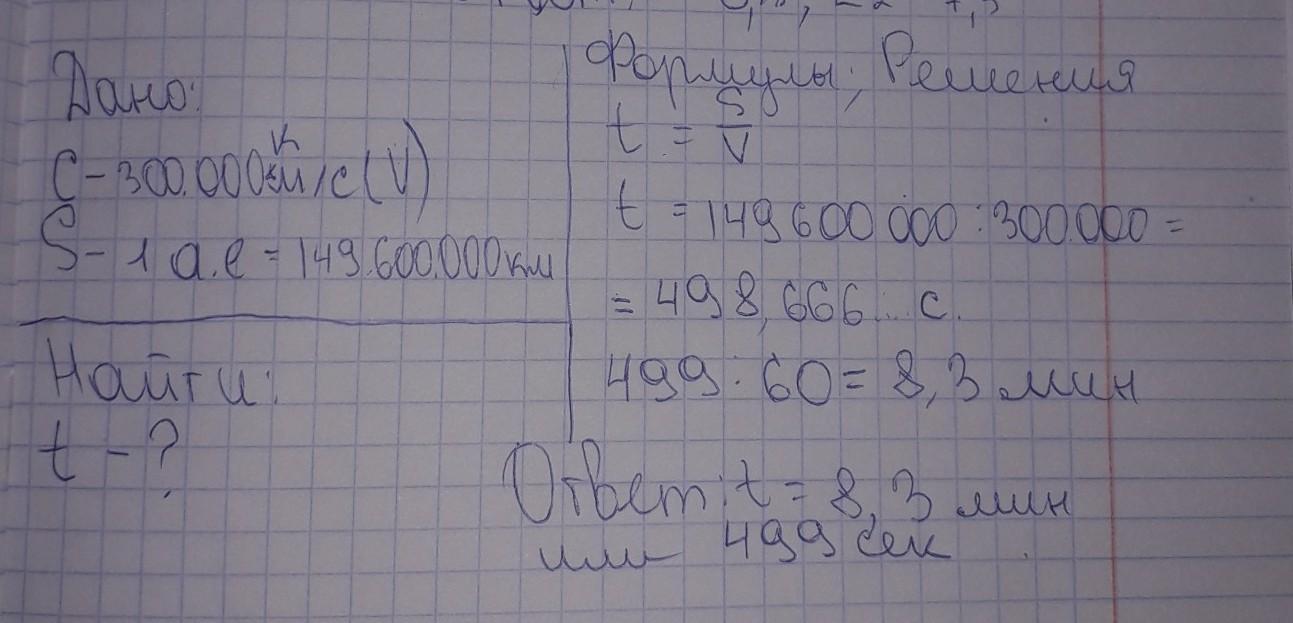 Дано:
C - 300.000 км/с (V)
S - 1 а.е = 149.600.000 км
Найти:
t - ?
Формулы; Решения
t = S/V
t = 149 600 000 : 300.000 =
= 498,666... с.
499 : 60 = 8,3 мин
Ответ: t = 8,3 мин
или 499 сек